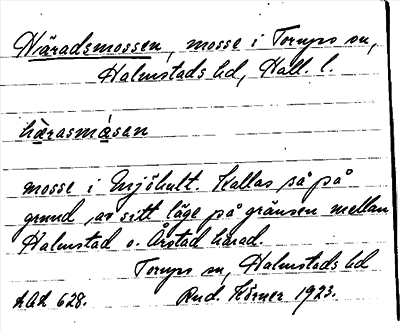 Häradsmossen, mosse i Torups sn,
Halmstads hd, Hall. l.
härasmåsen
mosse i Mjöhult. Kallas så på
grund av sitt läge på gränsen mellan
Halmstad o. Årstad härad.
Torups sn, Halmstads hd
AQA 628. Rud. Körner 1923.